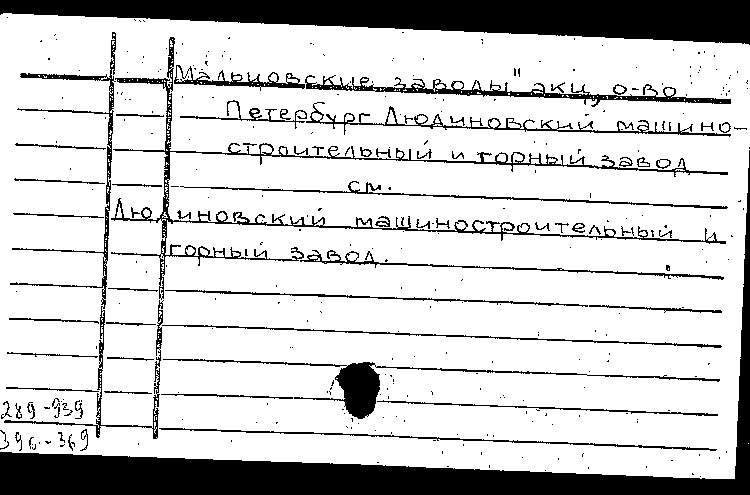 "Мальцовские заводы" акц. о-во
Петербург Людиновский машино-
строительный и горный завод
см.
Людиновский машиностроительный и
горный завод.
289-939
396-369